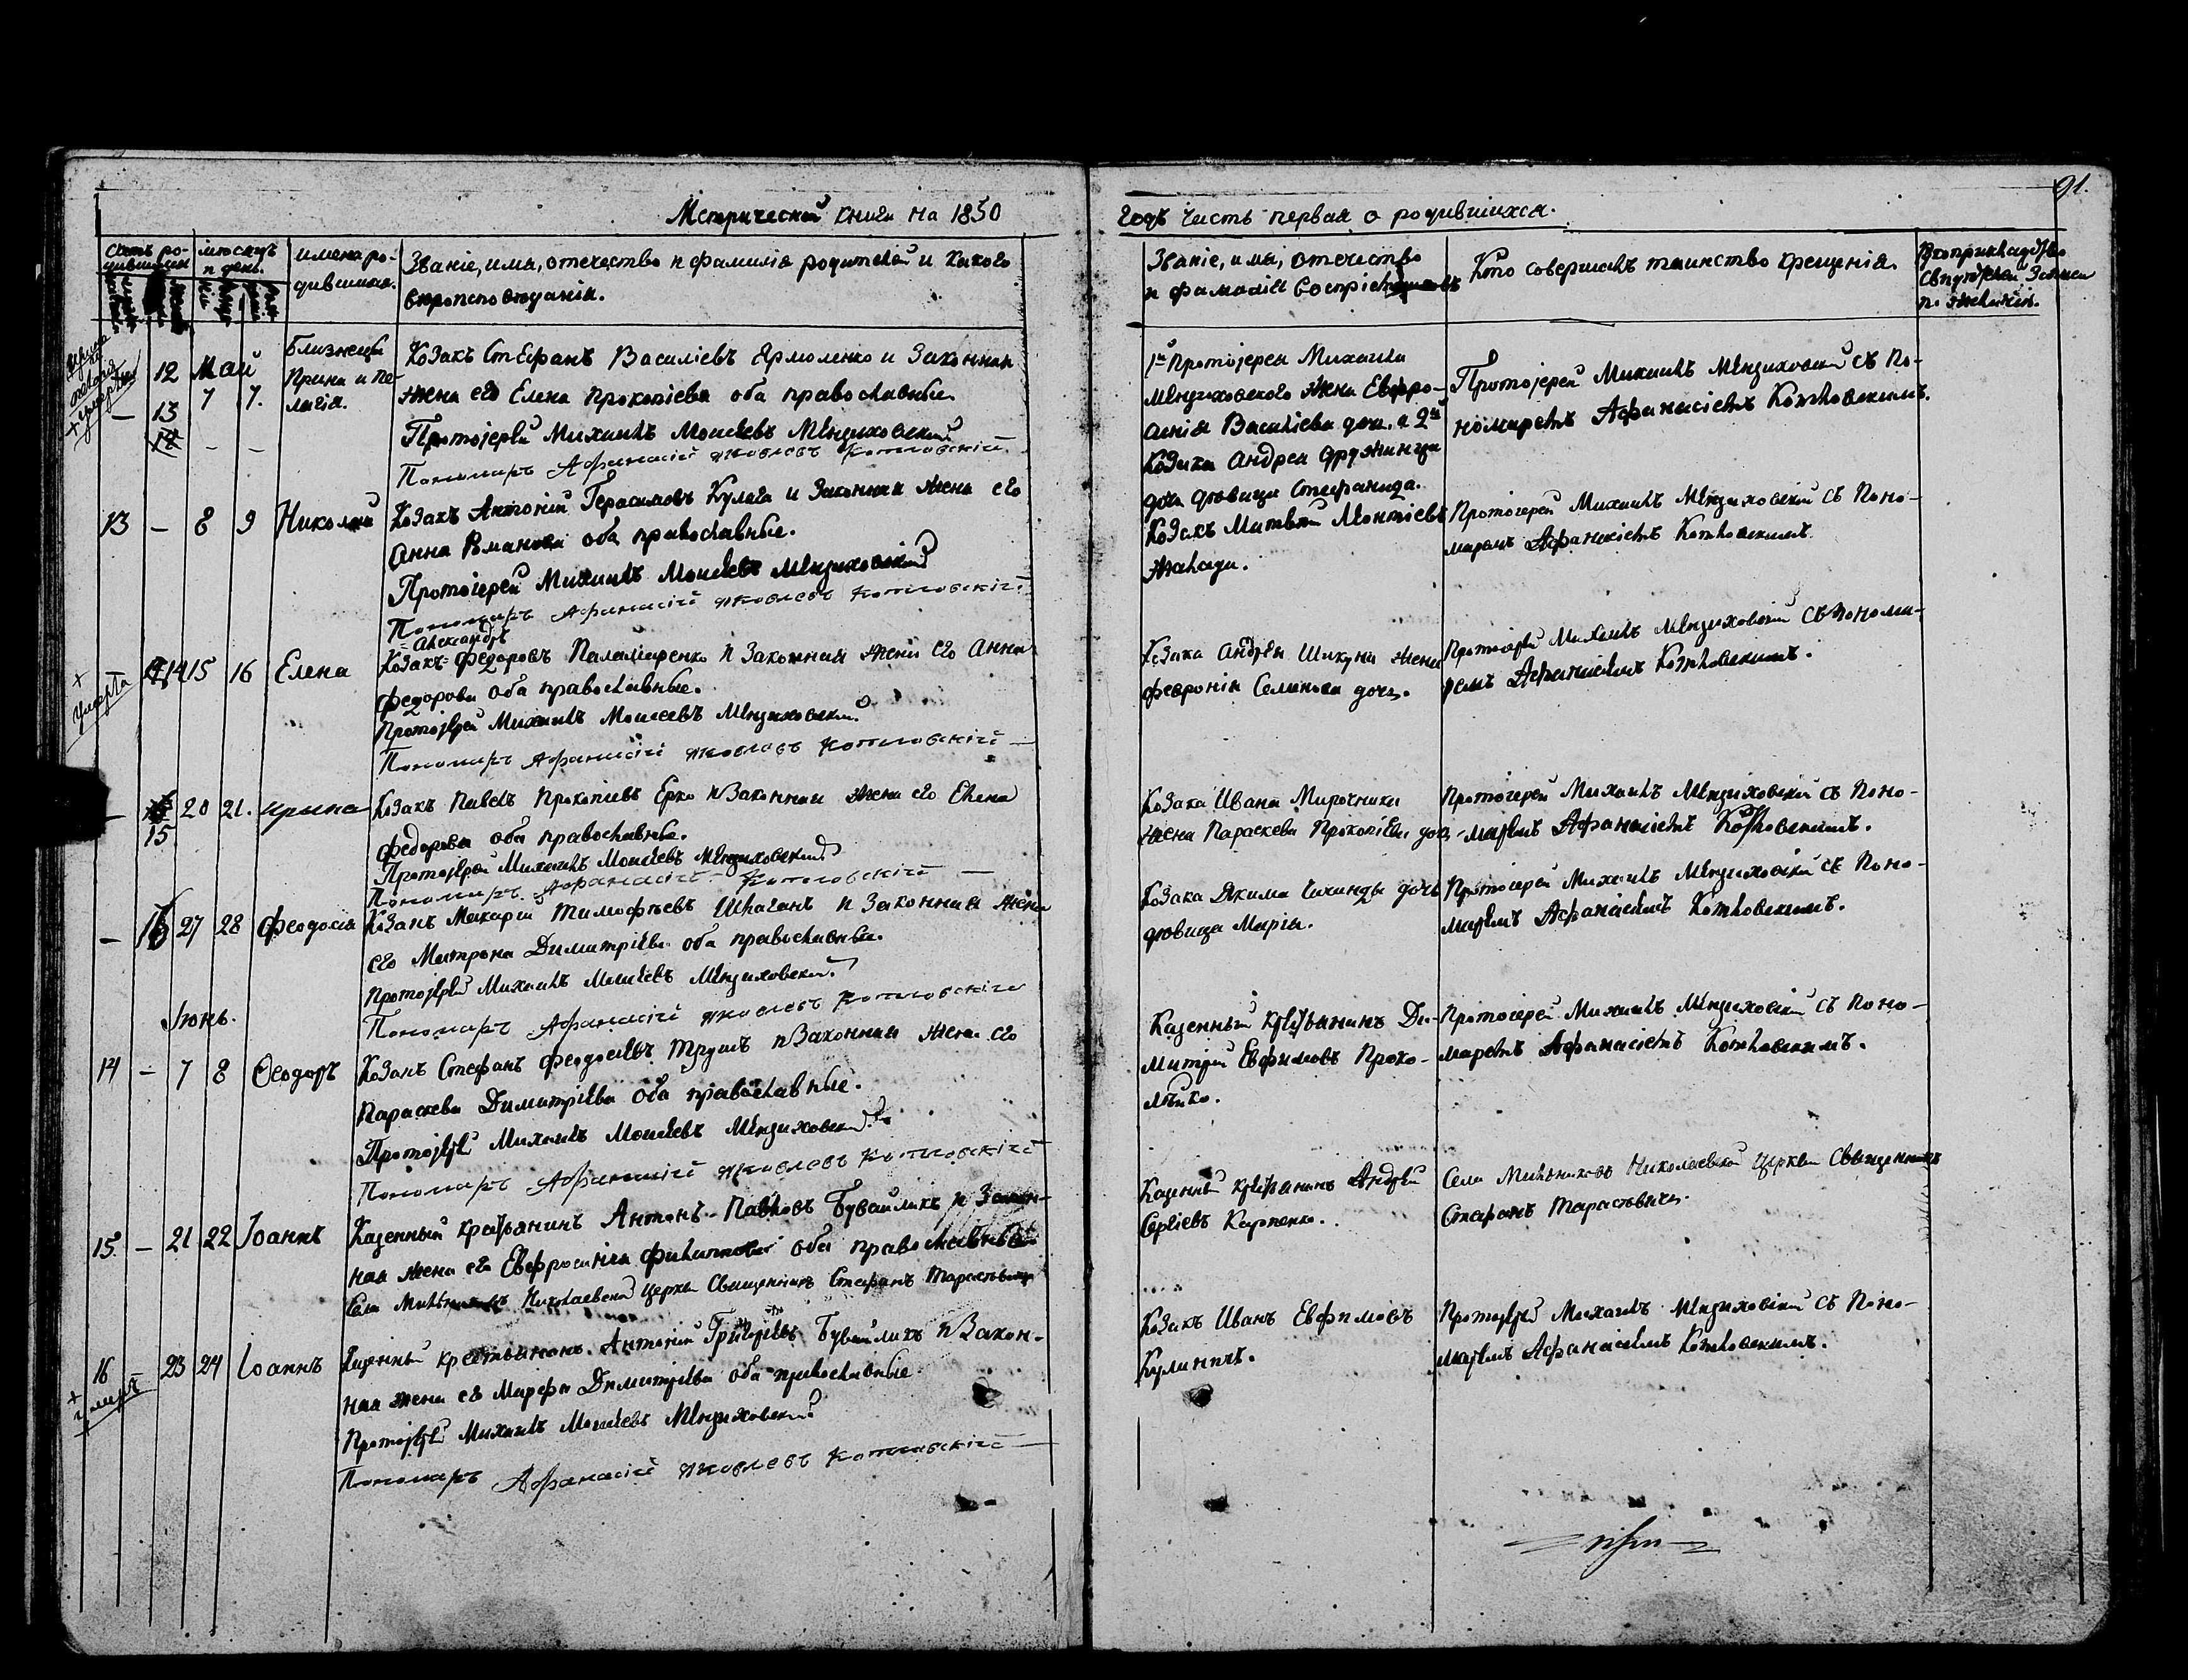 91.
Метрической книги на 1850
годъ часть первая о родившихся.
имена ро-
дившихся.
Званіе, имя, отечество и фамилія родителей и какого
вероисповеданія.
Званіе, имя, отечество
и фамилія
Кто совершалъ таинство крещенія.
12 Май
13 7 7.
Близнецы
Ирина и Пе-
лагія.
Козакъ Стефанъ Василіевъ Ярмоленко и законная
жена его Елена Прокопіева оба православные.
Протоіерей Михаилъ Моисеевъ
Пономарь Афанасій Яковлевъ Котловскій
1й Протоіерея Михаила
жена Евфро-
синія Василіева дочь. а 2й
Козака Андрея Дружинца
дочь девица Стефанида.
Протоіерей Михаилъ съ По-
номаремъ Афанасіемъ Котловскимъ.
13 — 8 9 Николай
Козакъ Антоній Герасимовъ Кулага и законная жена его
Анна Романова оба православные.
Протоіерей Михаилъ Моисеевъ
Пономарь Афанасій Яковлевъ Котловскій
Козакъ Матвей Леонтіевъ
Протоіерей Михаилъ съ Поно-
маремъ Афанасіемъ Котловскимъ.
+ умерла
— 14 15 16 Елена
Александръ
Козакъ Федоровъ Паламаренко и законная жена его Анна
Федорова оба православные.
Протоіерей Михаилъ Моисеевъ
Пономарь Афанасій Яковлевъ Котловскій
Козака Андрея Шикуна жена
Февронія Семенова дочь.
Протоіерей Михаилъ съ Понома-
ремъ Афанасіемъ Котловскимъ.
— 15 20 21. Ирина
Козакъ Павелъ Прокопіевъ Ерко и законная жена его Елена
Федорова оба православные.
Протоіерей Михаилъ Моисеевъ
Пономарь Афанасій Котловскій
Козака Ивана Мирочника
жена Параскева Прокопіева дочь
Протоіерей Михаилъ съ Поно-
маремъ Афанасіемъ Котловскимъ.
— 16 27 28 Феодосія
Козакъ Макарій Тимофеевъ и законная жена
его Матрона Димитріева оба православные.
Протоіерей Михаилъ Моисеевъ
Пономарь Афанасій Яковлевъ Котловскій
Козака Якима дочь
девица Марія.
Протоіерей Михаилъ съ Поно-
маремъ Афанасіемъ Котловскимъ.
Іюнь.
14 — 7 8 Феодоръ
Козакъ Стефанъ Феодосіевъ Трушъ и законная жена его
Параскева Димитріева оба православные.
Протоіерей Михаилъ Моисеевъ
Пономарь Афанасій Яковлевъ Котловскій
Казенный крестьянинъ Ди-
митрій Евфимовъ
Протоіерей Михаилъ съ Поно-
маремъ Афанасіемъ Котловскимъ.
15. — 21 22 Іоаннъ
Казенный крестьянинъ Антонъ Павловъ Бувайликъ и закон-
ная жена его Евфросинія Филиппова оба православные
Села Николаевской церкви Священникъ Стефанъ Тарасевичъ
Казенный крестьянинъ Андрей
Сергіевъ Карпенко.
Села Николаевской церкви Священникъ
Стефанъ Тарасевичъ.
16 — 23 24 Іоаннъ
+ умеръ
Казенный крестьянинъ Антоній Григоріевъ Бувайликъ и закон-
ная жена его Марфа Димитріева оба православные.
Протоіерей Михаилъ Моисеевъ
Пономарь Афанасій Яковлевъ Котловскій
Козакъ Иванъ Евфимовъ
Кулиничъ.
Протоіерей Михаилъ съ Поно-
маремъ Афанасіемъ Котловскимъ.